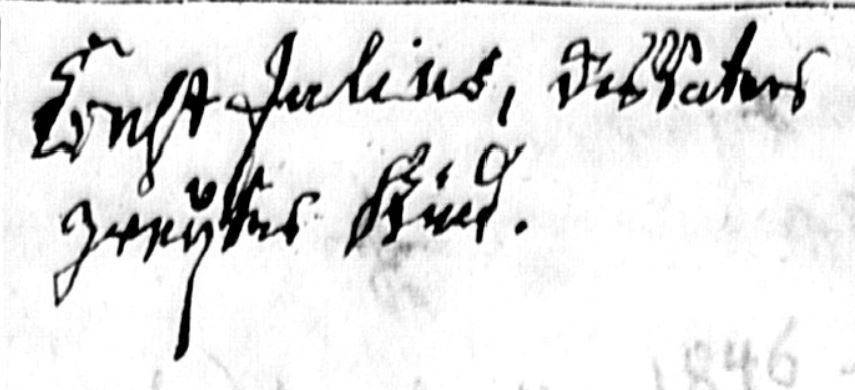 Ernst Julius, des Vaters
zweytes Kind.
1846